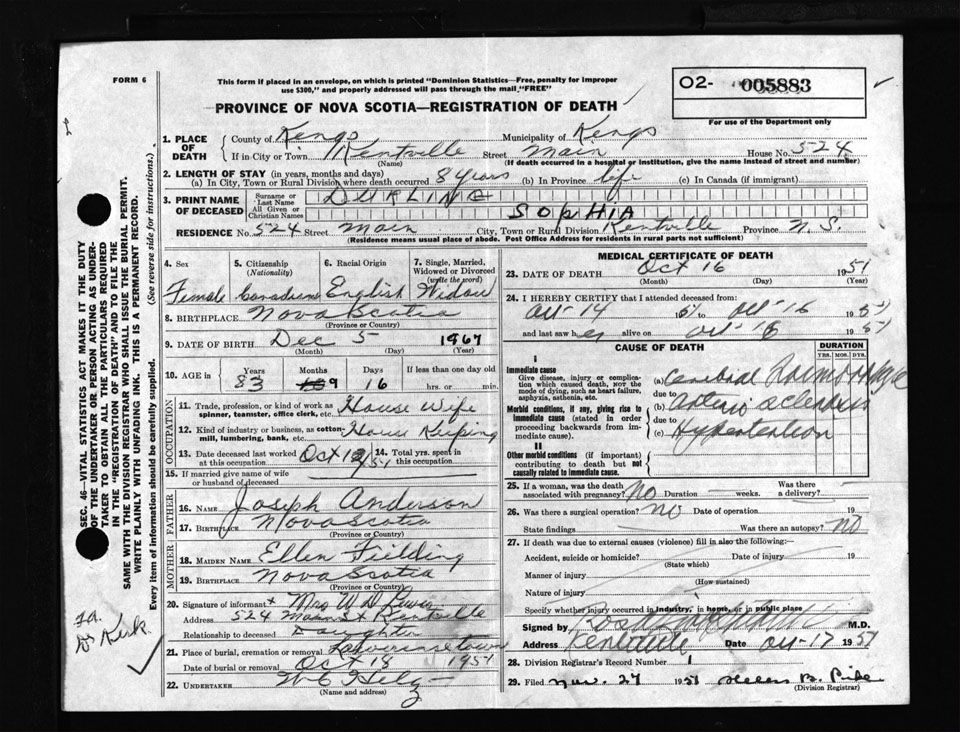 FORM 6
This form if placed in an envelope, on which is printed "Dominion Statistics—Free, penalty for improper
use $300," and properly addressed will pass through the mail "FREE"
O2- 005883
For use of the Department only
PROVINCE OF NOVA SCOTIA—REGISTRATION OF DEATH
1. PLACE OF DEATH
County of Kings Municipality of Kings
If in City or Town Kentville Street Main House No. 524
(Name) (If death occurred in a hospital or institution, give the name instead of street and number)
2. LENGTH OF STAY (in years, months and days)
(a) In City, Town or Rural Division where death occurred 8 years (b) In Province life (c) In Canada (if immigrant)
3. PRINT NAME OF DECEASED
Surname or Last Name DURLING
All Given or Christian Names SOPHIA
RESIDENCE No. 524 Street Main City, Town or Rural Division Kentville Province N.S.
(Residence means usual place of abode. Post Office Address for residents in rural parts not sufficient)
4. Sex
5. Citizenship (Nationality)
6. Racial Origin
7. Single, Married, Widowed or Divorced (write the word)
Female Canadian English Widow
8. BIRTHPLACE Nova Scotia
(Province or Country)
9. DATE OF BIRTH Dec 5 1967
(Month) (Day) (Year)
10. AGE in Years Months Days If less than one day
83 9 16 hrs. or min.
OCCUPATION
11. Trade, profession, or kind of work as spinner, teamster, office clerk, etc. House Wife
12. Kind of industry or business, as cotton-mill, lumbering, bank, etc. House Keeping
13. Date deceased last worked at this occupation Oct 12/51 14. Total yrs. spent in this occupation
15. If married give name of wife or husband of deceased
FATHER
16. NAME Joseph Anderson
17. BIRTHPLACE Nova Scotia
(Province or Country)
MOTHER
18. MAIDEN NAME Ellen Fielding
19. BIRTHPLACE Nova Scotia
(Province or Country)
20. Signature of informant x Mrs W D
Address 524 Main St Kentville
Relationship to deceased Daughter
21. Place of burial, cremation or removal Lawrencetown
Date of burial or removal Oct 18 1951
22. UNDERTAKER
(Name and address)
MEDICAL CERTIFICATE OF DEATH
23. DATE OF DEATH Oct 16 1951
(Month) (Day) (Year)
24. I HEREBY CERTIFY that I attended deceased from:
Oct-14 51 to Oct-16 1951
and last saw her alive on Oct-16 1951
CAUSE OF DEATH
DURATION
YRS. MOS. DYS.
I
Immediate cause
Give disease, injury or complication which caused death, not the mode of dying, such as heart failure, asphyxia, asthenia, etc.
(a) Cerebral
due to
Morbid conditions, if any, giving rise to immediate cause (stated in order proceeding backwards from immediate cause).
(b) Arterio sclerosis
due to
(c) Hypertention
II
Other morbid conditions (if important) contributing to death but not causally related to immediate cause.
25. If a woman, was the death associated with pregnancy? No Duration — weeks. Was there a delivery? —
26. Was there a surgical operation? No Date of operation 19
State findings Was there an autopsy? No
27. If death was due to external causes (violence) fill in also the following:—
Accident, suicide or homicide? Date of injury 19
(State which)
Manner of injury
(How sustained)
Nature of injury
Specify whether injury occurred in industry, in home, or in public place
Signed by M.D.
Address Kentville Date Oct-17 1951
28. Division Registrar's Record Number 1
29. Filed Nov. 27 1951 Helen B.
(Division Registrar)
SEC. 46—VITAL STATISTICS ACT MAKES IT THE DUTY
OF THE UNDERTAKER OR PERSON ACTING AS UNDER-
TAKER TO OBTAIN ALL THE PARTICULARS REQUIRED
IN THE "REGISTRATION OF DEATH" AND TO FILE THE
SAME WITH THE DIVISION REGISTRAR WHO SHALL ISSUE THE BURIAL PERMIT.
WRITE PLAINLY WITH UNFADING INK. THIS IS A PERMANENT RECORD.
Every item of information should be carefully supplied. (See reverse side for instructions.)
Kirk